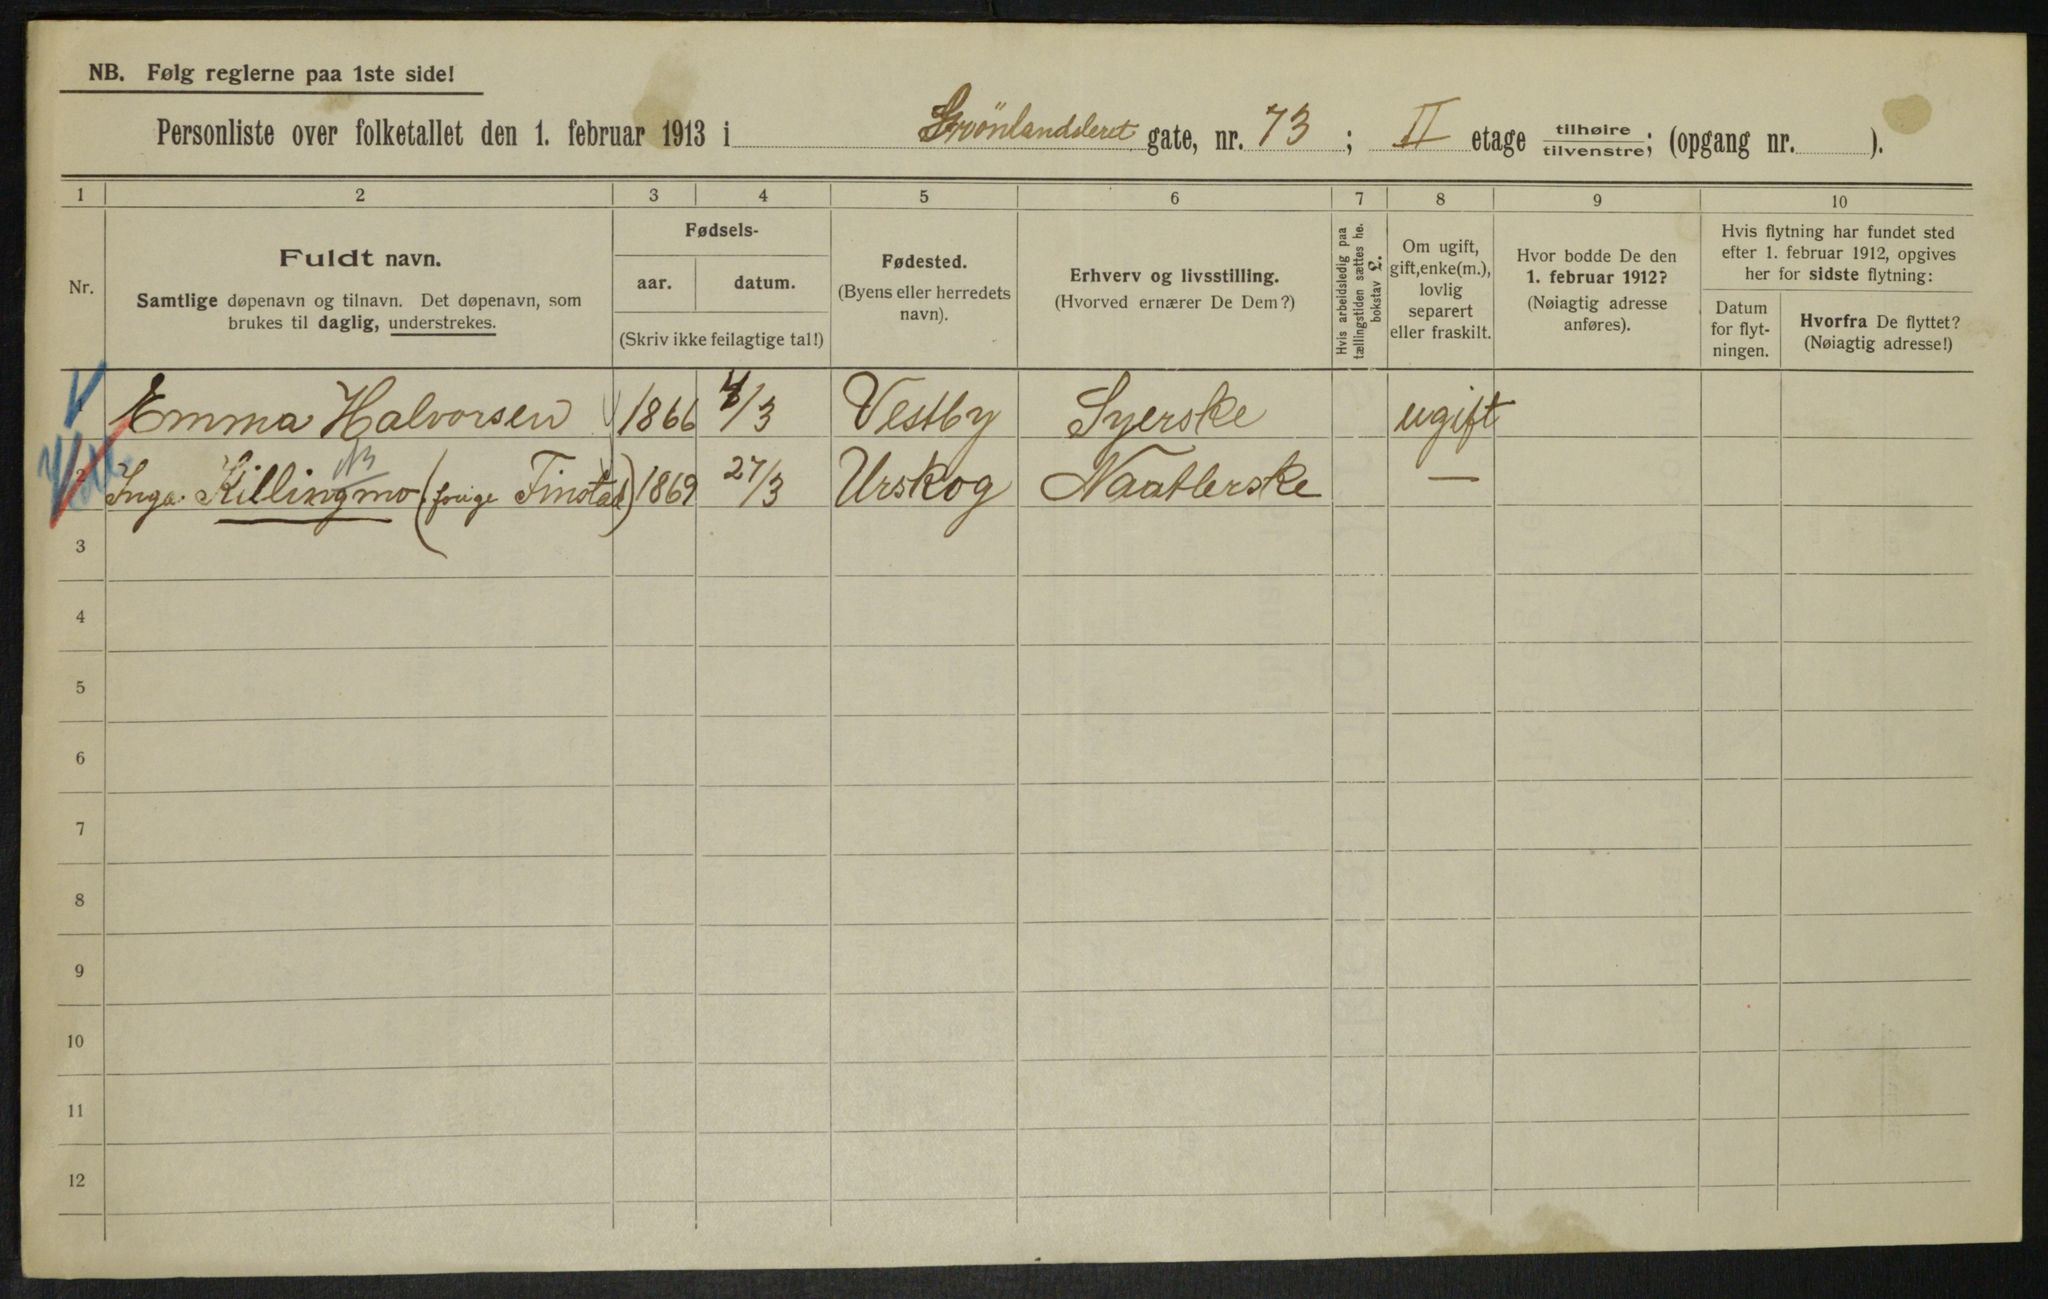 NB. Følg reglerne paa 1ste side!
Personliste over folketallet den 1. februar 1913 i Grönlandsleret gate, nr. 73; II etage tilhøire / tilvenstre; (opgang nr. ).
1 2 3 4 5 6 7 8 9 10
Nr.
Fuldt navn.
Samtlige døpenavn og tilnavn. Det døpenavn, som
brukes til daglig, understrekes.
Fødsels-
aar. datum.
(Skriv ikke feilagtige tal!)
Fødested.
(Byens eller herredets
navn).
Erhverv og livsstilling.
(Hvorved ernærer De Dem?)
Hvis arbeidsledig paa
tællingstiden sættes he.
bokstav L.
Om ugift,
gift, enke(m.),
lovlig
separert
eller fraskilt.
Hvor bodde De den
1. februar 1912?
(Nøiagtig adresse
anføres).
Hvis flytning har fundet sted
efter 1. februar 1912, opgives
her for sidste flytning:
Datum
for flyt-
ningen.
Hvorfra De flyttet?
(Nøiagtig adresse!)
Emma Halvorsen 1866 /3 Vestby Syerske ugift
2 Inga Killingmo (frige Finstad) 1869 27/3 Urskog Naatlerske —
3
4
5
6
7
8
9
10
11
12